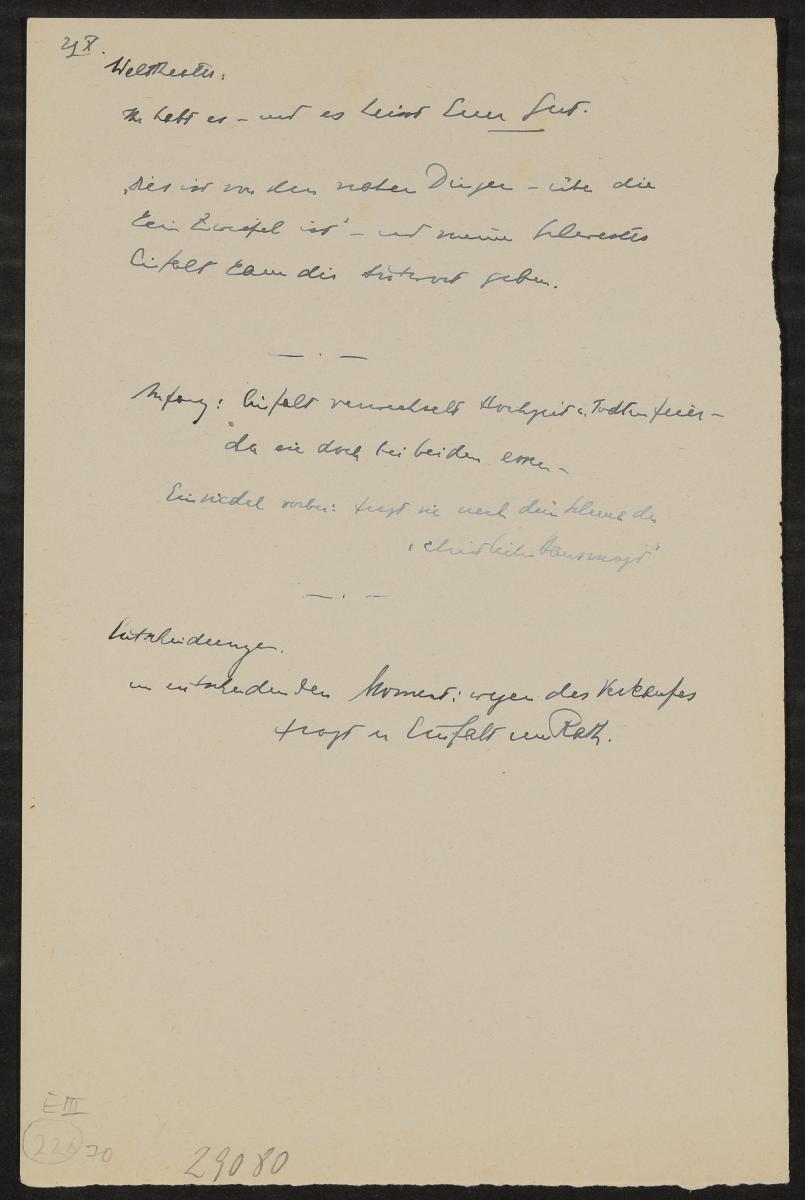 29 X.
Welttheater:
Ihr habt es – und es heisst Euer Gut.
„dies ist von den Dingen – über die
kein Zweifel ist" – und meine
Einfalt kann dir Antwort geben.
— . —
Anfang: Einfalt verwechselt Hochzeit u. Todtenfeier –
da sie doch bei beiden essen –
Einsiedel vorbei: fragt sie nach dem der
Hausmagd"
— . —
Entscheidungen.
im entscheidenden Moment: wegen des Verkaufes
fragt er Einfalt um Rath.
E III
22 70
29080